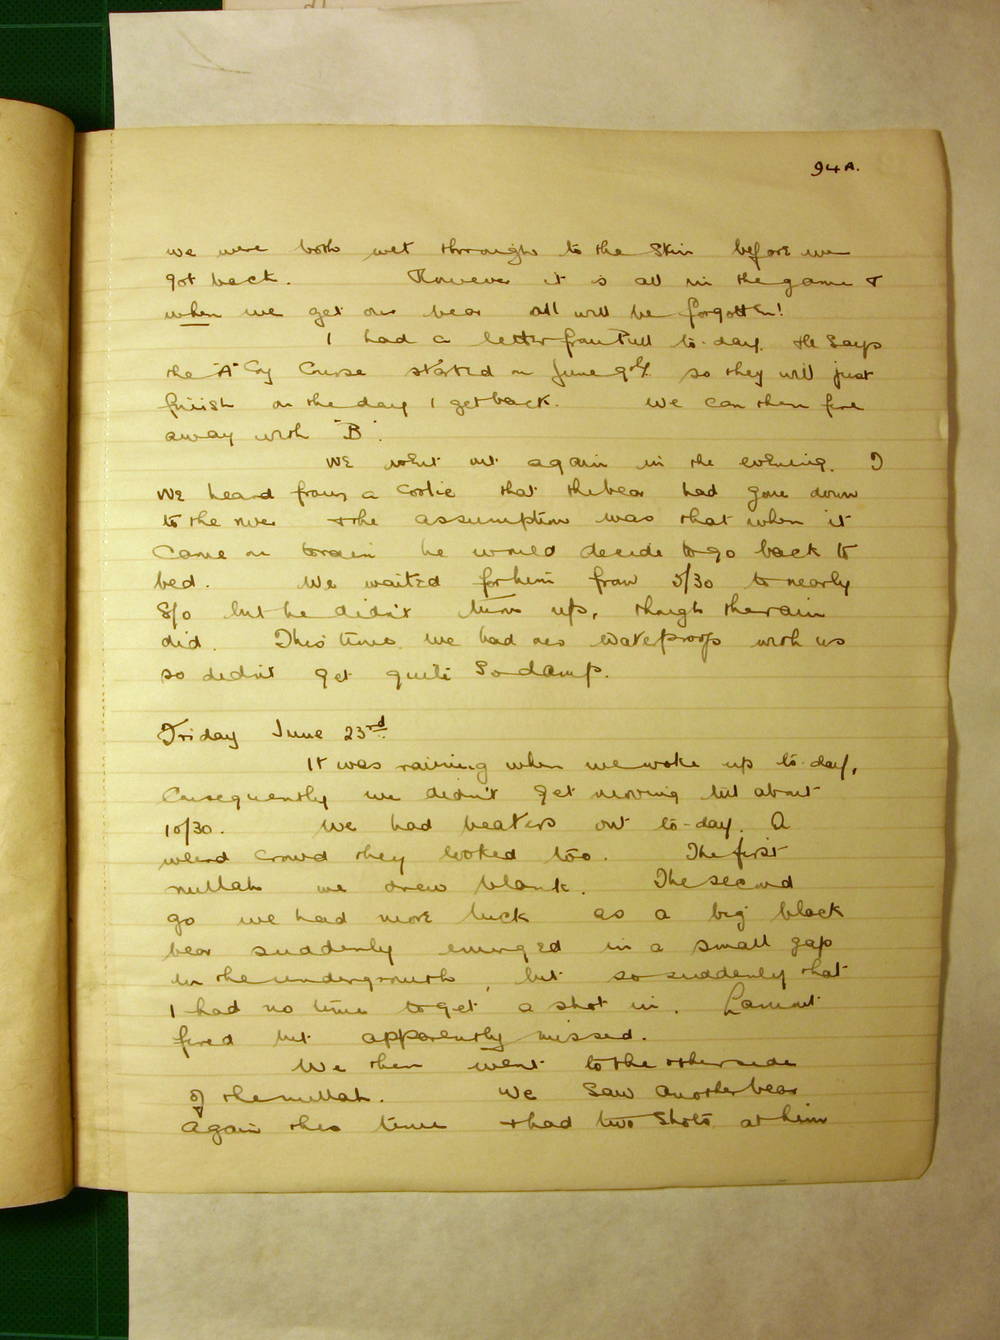 94A.
we were both wet through to the skin before we
got back. However it is all in the game &
when we get our bear all will be forgotten!
I had a letter from Pull to-day. He says
the "A" Coy Course started on June 9th so they will just
finish on the day I get back. We can then fire
away with "B".
We went out again in the evening. I
We heard from a coolie that the bear had gone down
to the river & the assumption was that when it
came on to rain he would decide to go back to
bed. We waited for him from 5/30 to nearly
8/0 but he didn't turn up, though the rain
did. This time we had our waterproofs with us
so didn't get quite so damp.
Friday June 23rd
It was raining when we woke up to-day,
Consequently we didn't get moving till about
10/30. We had beaters out to-day. A
weird crowd they looked too. The first
nullah we drew blank. The second
go we had more luck as a big black
bear suddenly emerged in a small gap
in the undergrowth, but so suddenly that
I had no time to get a shot in. Lamont
fired but apparently missed.
We then went to the other side
of the nullah. We saw another bear
again this time & had two shots at him